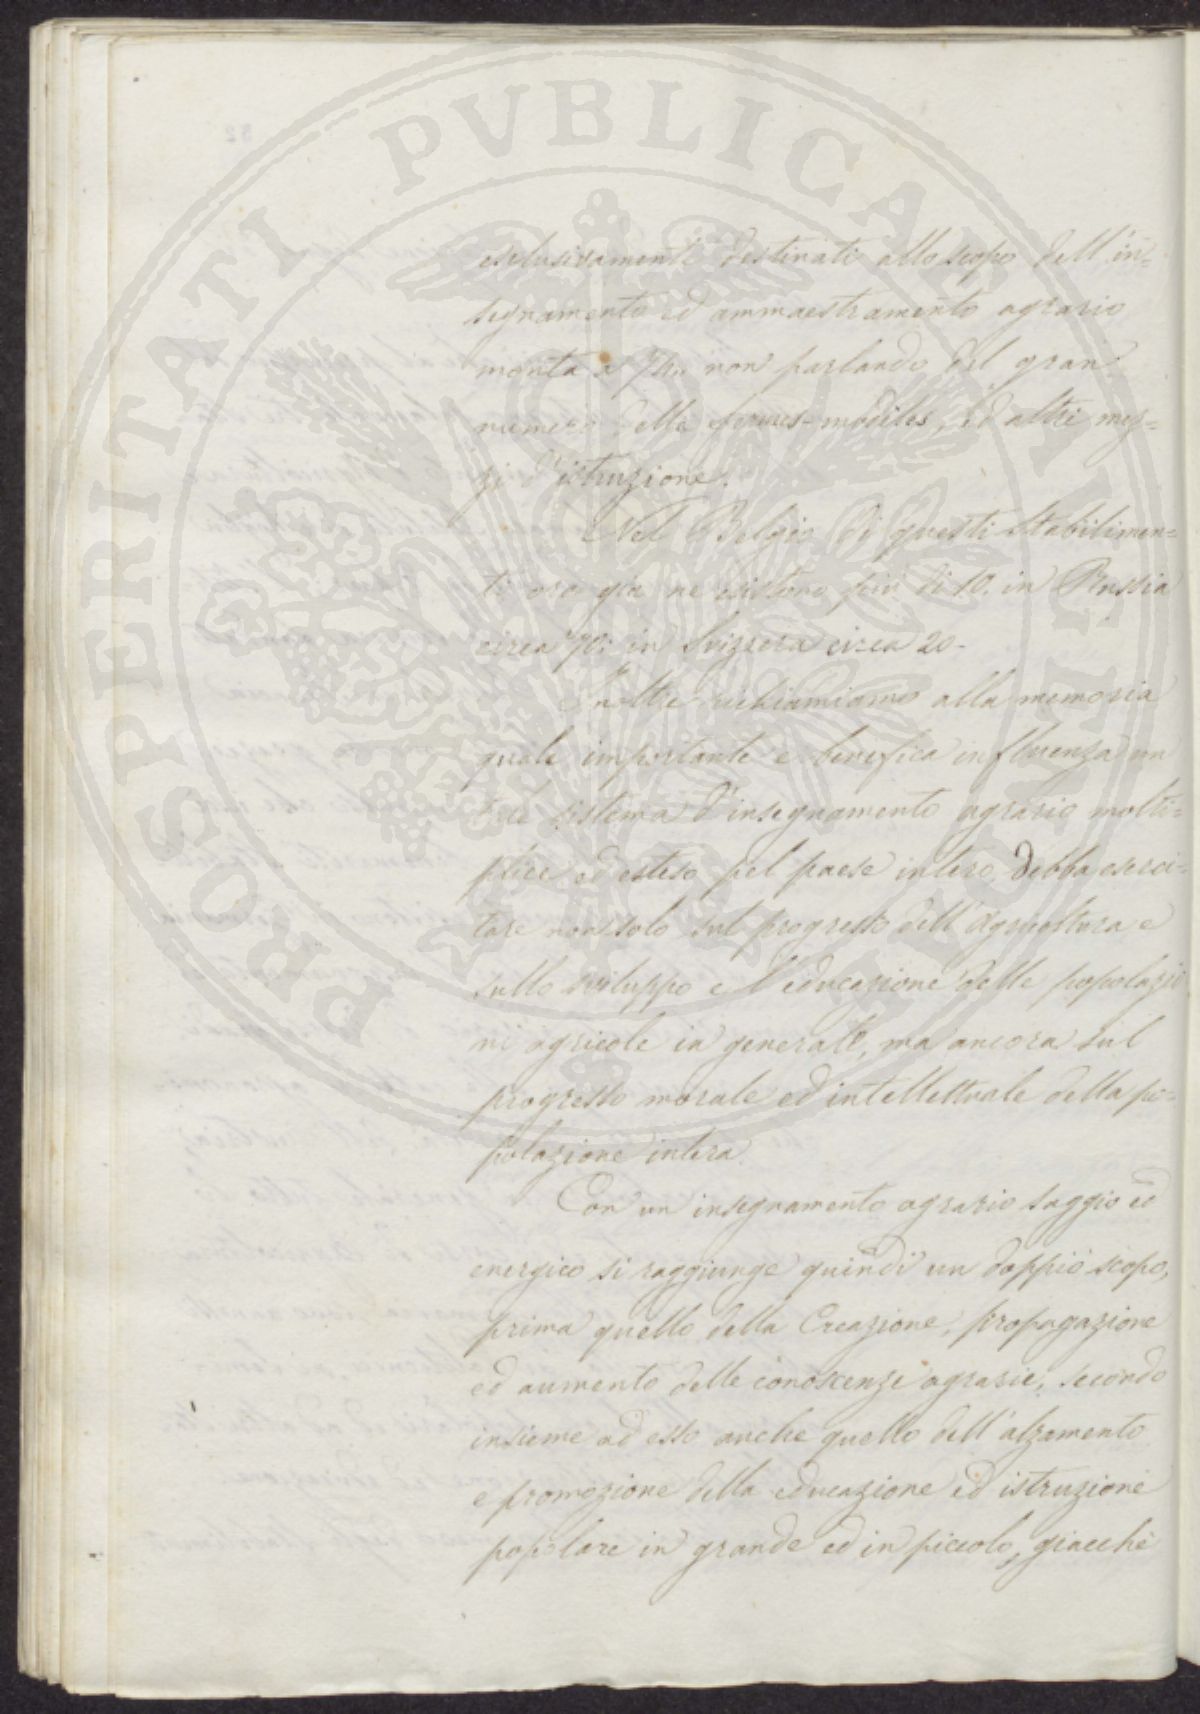 PROSPERITATI PVBLICAE AVGENDAE
esclusivamente destinati allo scopo dell'in-
segnamento ed ammaestramento agrario
monta a non parlando del gran
numero delle fermes-modèles, ed altri mez-
zi d'istruzione.
Nel Belgio di questi Stabilimen-
ti ora già ne esistono più di 10. in Russia
circa 70; in Svizzera circa 20-
Inoltre richiamiamo alla memoria
quale importante e benefica influenza un
tale sistema d'insegnamento agrario molti-
plice ed esteso pel paese intero debba eserci-
tare non solo sul progresso dell'Agricoltura e
sullo sviluppo e l'educazione delle popolazio
ni agricole in generale, ma ancora sul
progresso morale ed intellettuale della po-
polazione intera.
Con un insegnamento agrario saggio ed
energico si raggiunge quindi un doppio scopo,
prima quello della Creazione, propagazione
ed aumento delle conoscenze agrarie, secondo
insieme ad esso anche quello dell'alzamento
e promozione della educazione ed istruzione
popolare in grande ed in piccolo, giacchè